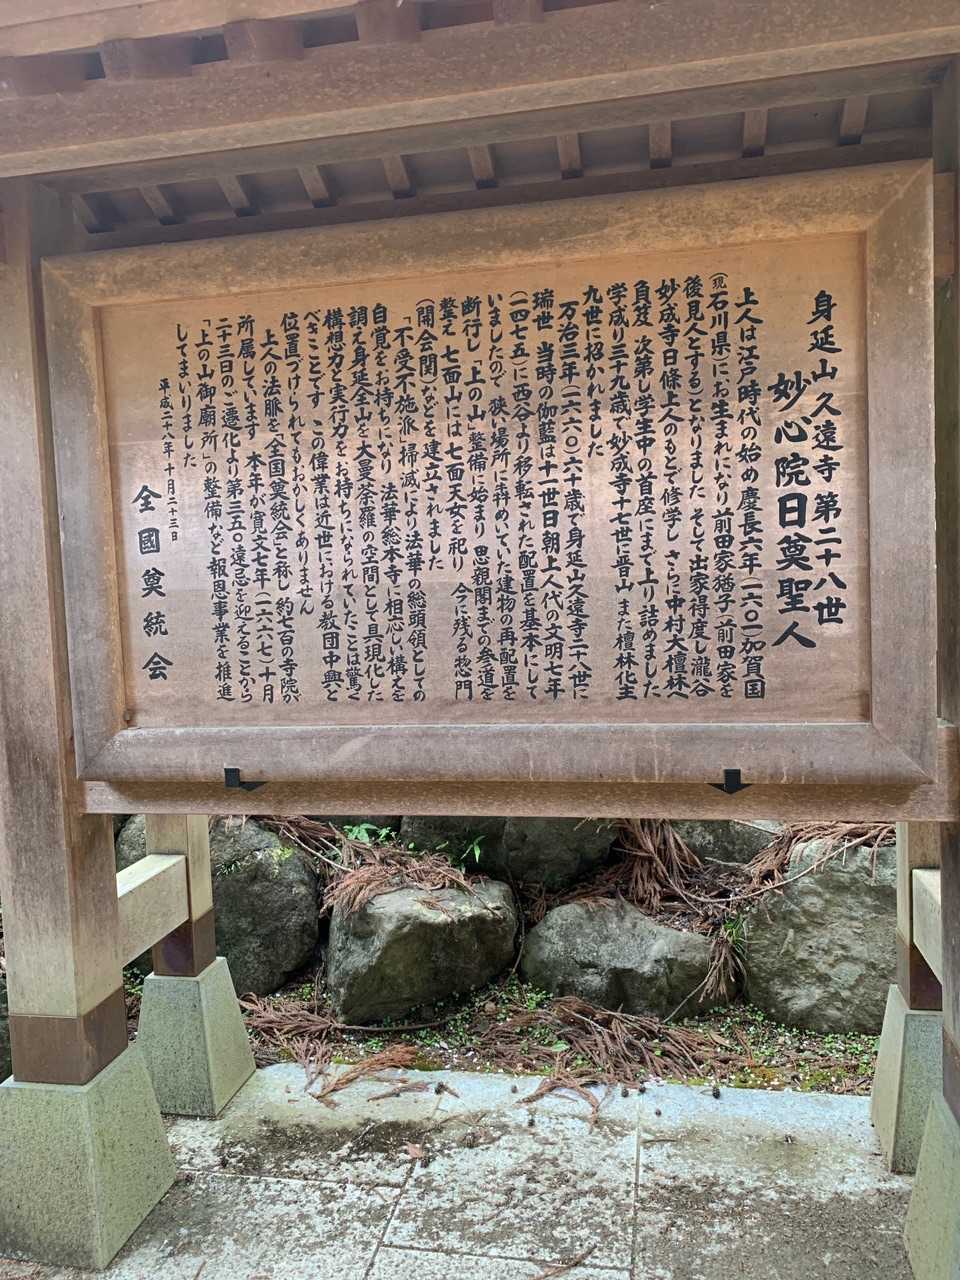 身延山久遠寺 第二十八世
妙心院日奠聖人
上人は江戸時代の始め 慶長六年(一六〇一)加賀国
(現石川県)にお生まれになり前田家猶子(前田家を
後見人とする)となりました そして出家得度し瀧谷
妙成寺日條上人のもとで修学し さらに中村大檀林へ
負笈 次第し学生中の首座にまで上り詰めました
学成り三十九歳で妙成寺十七世に晋山 また檀林化主
九世に招かれました
万治三年(一六六〇)六十歳で身延山久遠寺二十八世に
瑞世 当時の伽藍は十一世日朝上人代の文明七年
(一四七五)に西谷より移転された配置を基本にして
いましたので 狭い場所に犇めいていた建物の再配置を
断行し「上の山」整備に始まり 思親閣までの参道を
整え 七面山には 七面天女を祀り 今に残る惣門
(開会関)などを建立されました
「不受不施派」掃滅により法華の総頭領としての
自覚をお持ちになり 法華総本寺に相応しい構えを
調え身延全山を大曼荼羅の空間として具現化した
構想力と実行力をお持ちになられていたことは驚く
べきことです この偉業は近世における教団中興と
位置づけられてもおかしくありません
上人の法脈を「全国奠統会」と称し 約七百の寺院が
所属しています 本年が寛文七年(一六六七)十月
二十三日のご遷化より第三五〇遠忌を迎えることから
「上の山御廟所」の整備など報恩事業を推進
してまいりました
平成二十八年十月二十三日
全國奠統会